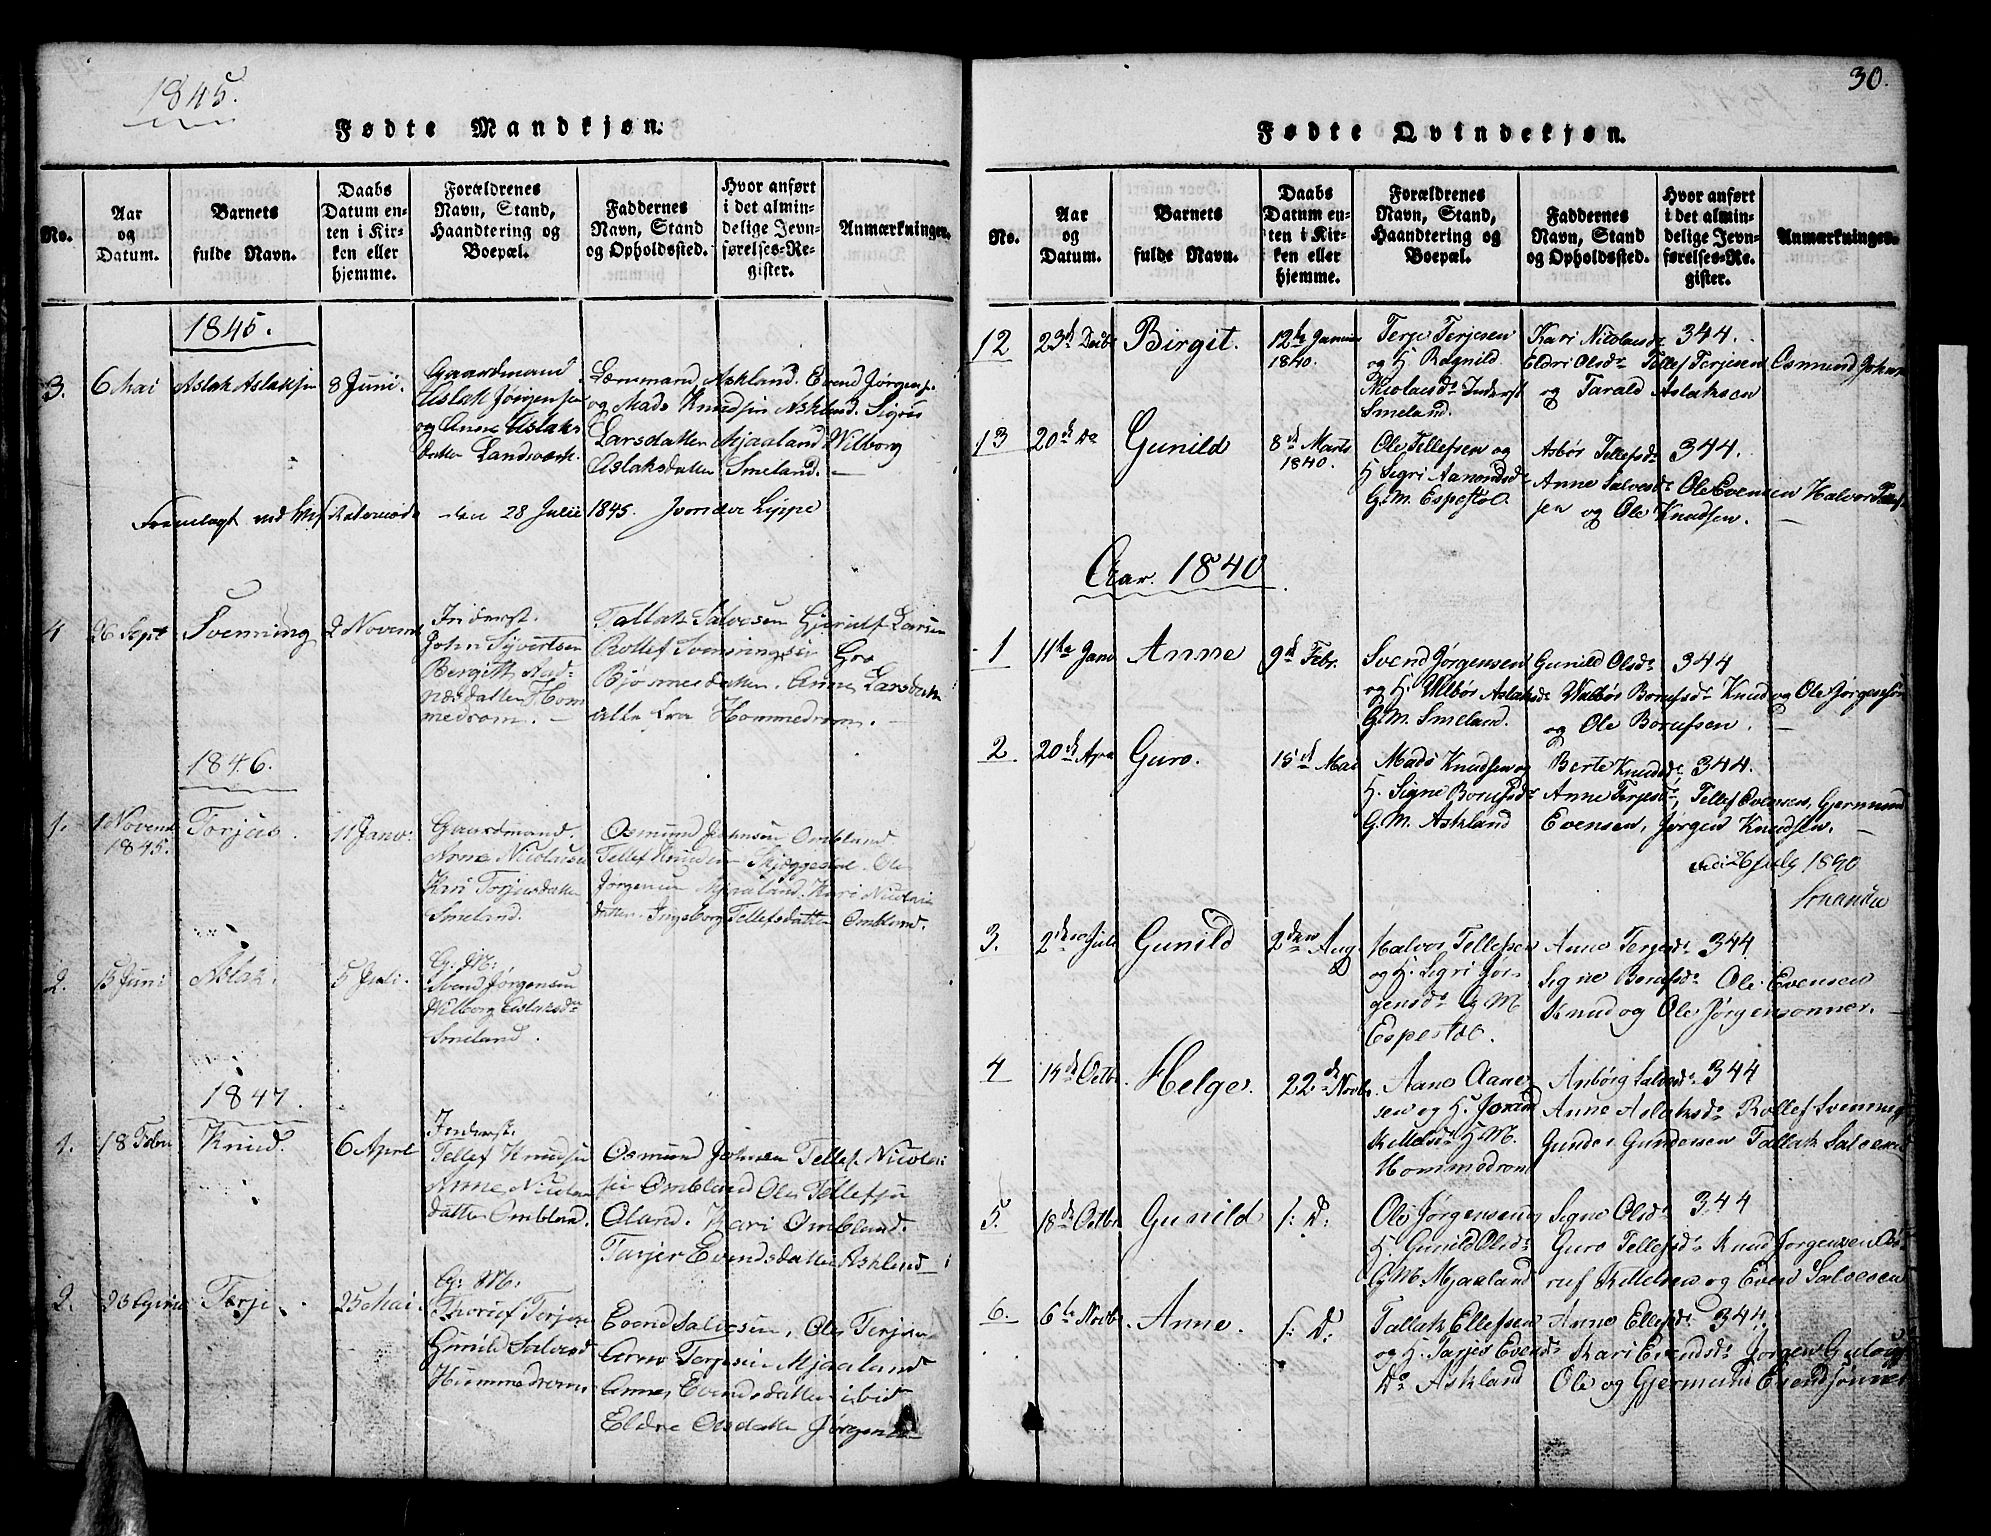 1845.
Fødte Mandkjøn.
No.
Aar
og
Datum.
Barnets
fulde Navn.
Daabs
Datum en-
ten i Kir-
ken eller
hjemme.
Forældrenes
Navn, Stand,
Haandtering og
Boepæl.
Faddernes
Navn, Stand
og Opholdssted.
Hvor anført
i det almin-
delige Jevn-
førelses-Re-
gister.
Anmærkninger.
1845.
3. 6 Mai Aslak Aslaksen 8 Juni.
Gaardmand
Aslak Jørgensen
og Anne Aslaks
datter Landsverk.
Lensmand Askland. Evend Jørgens.
og Mads Knudsen Askland. Sigrie
Larsdatter Mjaaland Wilborg
Aslaksdatter Smeland.
Fremlagt ved den 28 Julie 1845.
4 26 Sept Svenning 2 Novemb
Inderst.
John Syvertsen
Bergitte
datter Hom
medrom.
Tallak Salvesen Gjerulf Larsen
Rollef Svenningsen Gro
Bjørnesdatter. Anne Larsdatter
alle fra Hommedrom.
1846.
1. 1 Novemb
1845. Torjus. 11 Janv.
Gaardmand.
Arne Nicolaisen
Kari Torjusdatter
Smeland.
Osmund Johnsen Ombland
Tellef Knudsen Skjeggestad. Ole
Jørgensen Mjaaland. Kari Nicolai
datter. Ingeborg Tellefsdatter Ombland.
2. 15 Juni Aslak. 5 Juli.
G: M:
Svend Jørgensen
Wilborg Aslaksdr
Smeland.
1847.
1. 18 Febru Knud. 6 April
Inderst.
Tellef Knudsen
Anne Nicolai
datter Ombland.
Osmund Johnsen Tellef Nicolai
sen Ombland Ole Tellefsen
Oland. Kari Ombland.
Tarjer Evendsdatter Askland
2. Terje. 25 Mai.
G: M:
Thoruf Torjesen
Gunild Salvesd
Hummedrom.
Evend Salvesen, Ole Terjesen
Arne Terjesen Mjaaland
Anne Evendsdatter ibid
Eldre Olsdatter
30.
Fødte Qvindekjøn.
No.
Aar
og
Datum.
Barnets
fulde Navn.
Daabs
Datum en-
ten i Kir-
ken eller
hjemme.
Forældrenes
Navn, Stand,
Haandtering og
Boepæl.
Faddernes
Navn, Stand
og Opholdssted.
Hvor anført
i det almin-
delige Jevn-
førelses-Re-
gister.
Anmærkninger.
12 23d Decbr Birgit. 12te Januar
1840.
Terje Terjesen
og H. Ragnild
Nicolaisdr Inderst
Smeland.
Kari Nicolaisdr 344.
Eldri Olsdr Tellef Terjesen Osmund Johns
og Tarald Aslaksen
13 20de Do Gunild 8d Marts
1840.
Ole Tellefsen og
H. Sigri Aanondsdr
G.M. Espestøl.
Asbør Tellefsdr 344.
Anne Salvesdr Ole Evensen Halvor Tellef
sen og Ole Knudsen.
Aar. 1840.
1 11te Janv Anne 9d Febr.
Svend Jørgensen
og H. Wilbør Aslaksdr
G.M. Smeland.
Gunild Olsdr 344
Walbør Borufsdr Knud og Ole Jørgensøn
og Ole Borufsen.
2. 20de Apr Guro. 15d Mai
Mads Knudsen og
H. Signe Borufsdr
G.M. Askland
Berte Knudsdr 344.
Anne Terjesdr, Tellef Evensen, Gjermund
Evensen, Jørgen Knudsen.
26 July 1840
3. 2den Juli Gunild 2den Aug
Halvor Tellefsen
og H. Sigri Jør-
gensdr G M
Espestøl.
Anne Terjesdr 344
Signe Borufsdr Ole Evensen
Knud og Ole Jørgensønner.
4 14de Octbr. Helge. 22de Novbr.
Aane Aane
sen og H. Joran
Kittelsdr H M.
Hommedrom
Anbørg Salvesdr 344
Anne Aslaksdr Rollef Svenning
Gunder Gundersen Tallak Salvesen
5. 18de Octbr Gunild f: D:
Ole Jørgensen og
H. Gunild Olsdr
G.M. Mjaaland
Signe Olsdr 344
Guro Tellefsdr Knud Jørgensen Bo-
ruf Kittelsen og Even Salvesen
6. 6te Novbr Anne. f: D:
Tallak Ellefsen
og H. Tarjer Evendr
Do Askland
Anne Ellefsdr 344.
Kari Evendsdr Jørgen
Ole og Gjermund Evendsønner